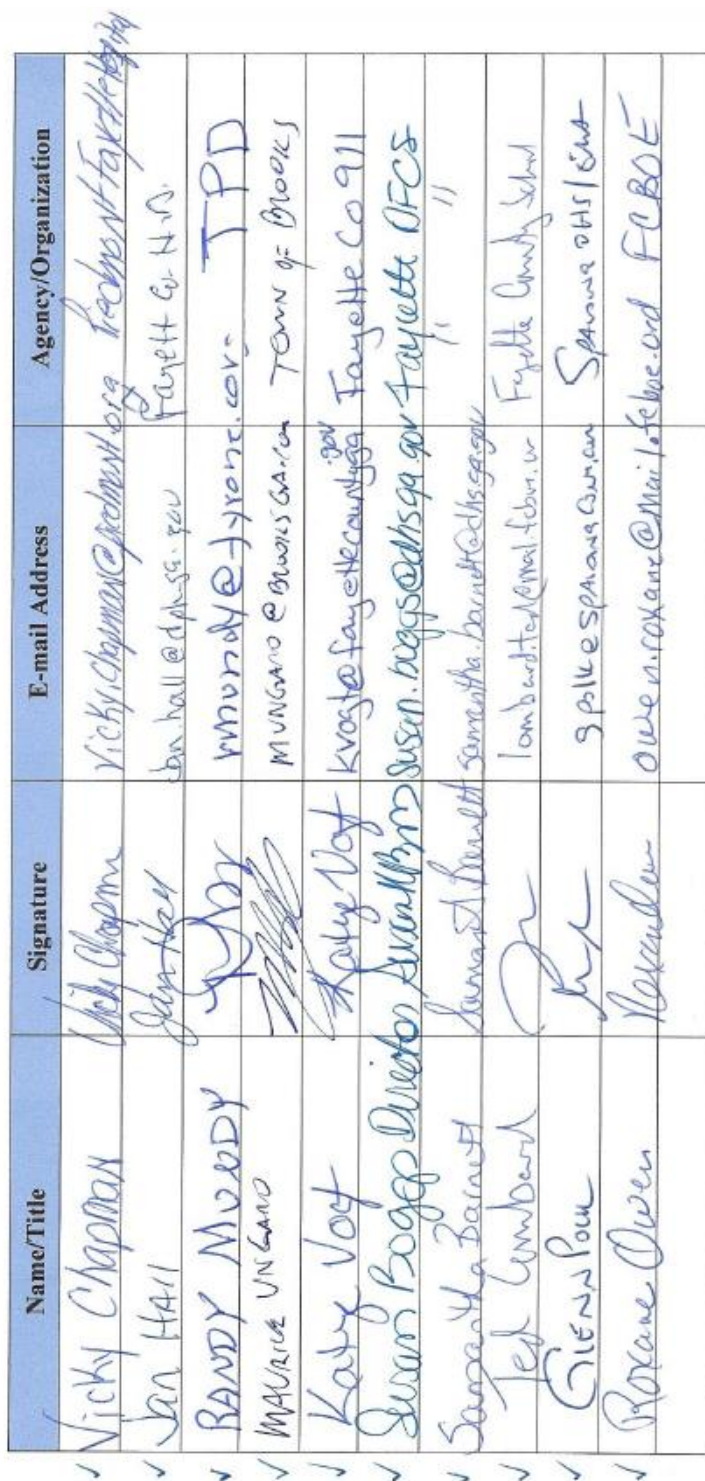 Name/Title Signature E-mail Address Agency/Organization
✓ Vicky Chapman Vicky Chapman vicky.chapman@piedmont.org Piedmont Fayette Hospital
✓ Jan Hall Jan Hall Jan.hall@dph.ga.gov Fayett Co. H.D.
✓ RANDY MUNDY rmundy@tyrone.org TPD
✓ MAURICE UNGARO MUNGARO@BROOKSGA.COM TOWN OF BROOKS
✓ Katye Vogt Katye Vogt kvogt@fayettecountyga.gov Fayette Co 911
✓ Susan Boggs Director Susan Boggs susan.boggs@dhs.ga.gov Fayette DFCS
✓ Samantha Barnett Samantha Barnett samantha.barnett@dhs.ga.gov " "
✓ Ted Lombard Fayette County School
✓ GLENN
✓ Roxane Owen owen.roxane@mail.fcboe.org FCBOE